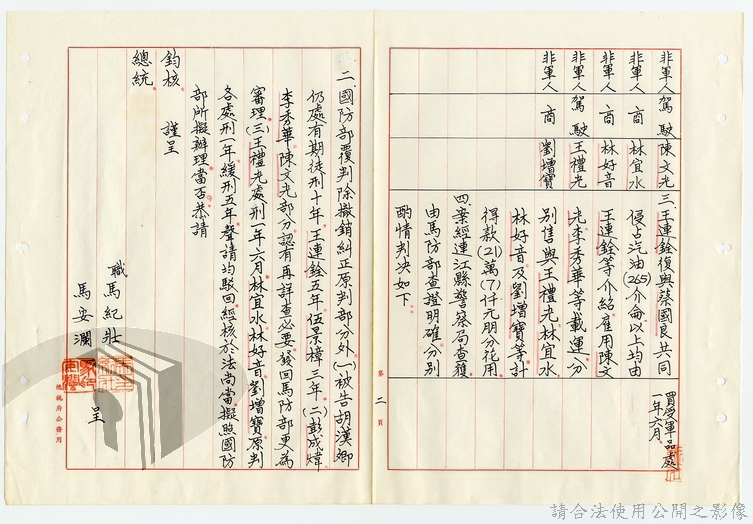 非軍人 駕駛 陳文光
非軍人 商 林宜水
非軍人 商 林好音
非軍人 駕駛 王禮光
非軍人 商 劉增寶
買受軍品處
一年六月
三、王連銓復與蔡國良共同
侵占汽油(265)介侖以上均由
王連銓等介紹雇用陳文
光李秀華等載運、分
別售與王禮光林宜水
林好音及劉增寶等計
得款(21)萬(7)仟元朋分花用
四、案經連江縣警察局查獲
由馬防部查證明確、分別
酌情判決如下、
第二頁
二、國防部覆判除撤銷糾正原判部分外、(一)被告胡漢卿
仍處有期徒刑十年、王連銓五年伍景樟三年、(二)彭成煒
李秀華陳文光部分認有再詳查必要發回馬防部更為
審理、(三)王禮光處刑一年六月、林宜水、林好音、劉增寶、原判
各處刑一年、緩刑五年、聲請均駁回、經核於法尚當、擬照國防
部所擬辦理、當否恭請
鈞核 謹呈
總統
職 馬紀壯
馬安瀾 呈
總統府公務用
請合法使用公開之影像